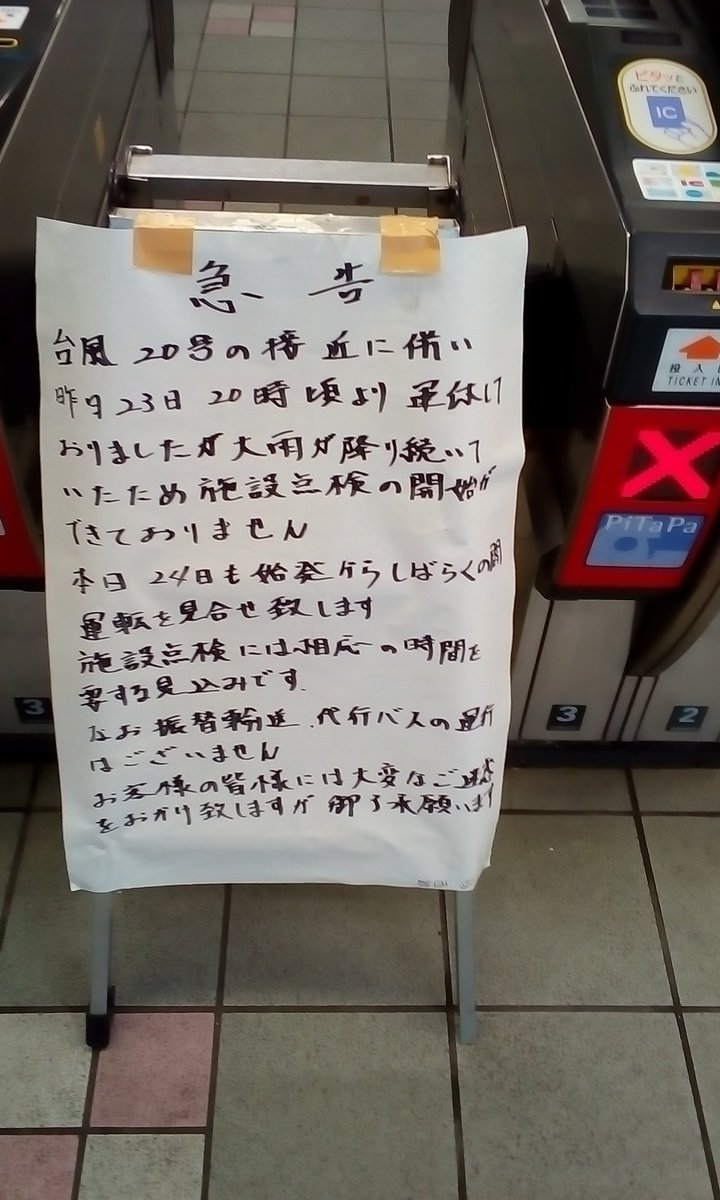 急告
台風20号の接近に備い
昨日23日20時頃より運休して
おりましたが大雨が降り続いて
いたため施設点検の開始が
できておりません
本日24日も始発からしばらくの間
運転を見合せ致します
施設点検には相応の時間を
要する見込みです.
なお振替輸送、代行バスの運行
はございません
お客様の皆様には大変なご迷惑
をおかけ致しますが御了承願います
ピタッと
ふれてください
IC
TICKET IN
PiTaPa
3
3
2